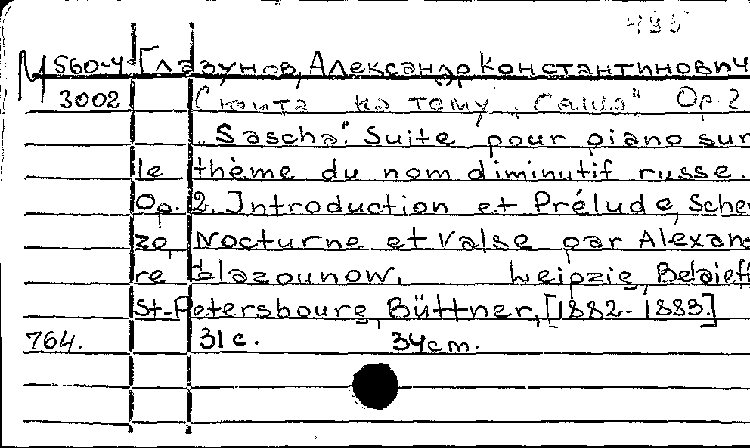 495
М 560-4 Глазунов, Александр Константинович
3002 Сюита на тему „Саша" Op. 2
„Sascha". Suite pour piano sur
le thème du nom diminutif russe.
Op. 2. Introduction et Prélude, Scher
zo, Nocturne et Valse par Alexan
re Glazounow. Leipzig, Belaieff
St-Petersbourg, Büttner, [1882-1883.]
764. 31 с. 34cm.